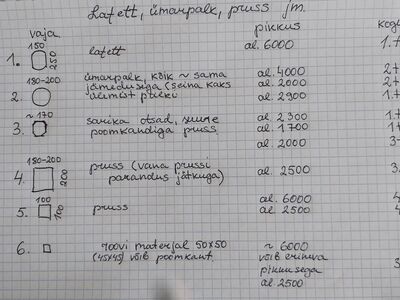 Lafett, ümarpalk, pruss jm.
vaja pikkus kogu
150
1. 250 lafett al. 6000 1.t
180-200 ümarpalk, kõik ~ sama al. 4000 2t
jämedusega (seina kaks al. 2000 2t
2. alumist palki al. 2900 1.t
~170
3. sarika otsad, suure al. 2300 1.t
poomkandiga pruss al. 1700 1.t
al. 2000 3-
180-200
4. 200 pruss (vana prussi al. 2500 3.
parandus jätkuga)
100 al. 6000
5. 100 pruss al. 2500
6. roovi materjal 50x50 ~ 6000
(45x45) võib poomkant. võib erineva
pikkusega
al. 2500